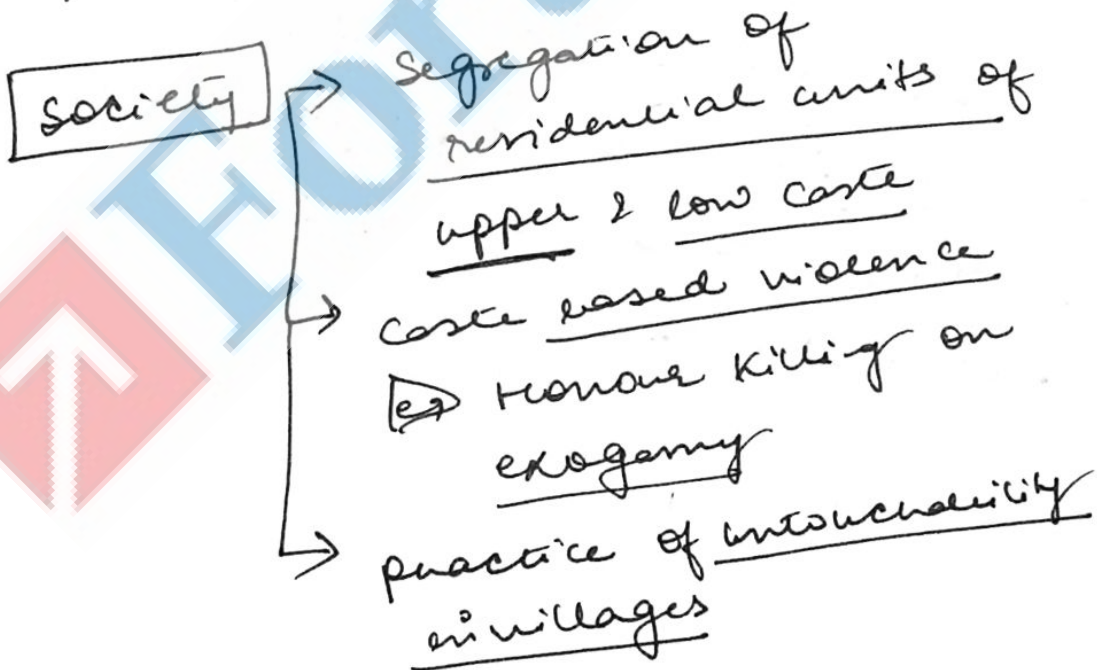 Society
Segregation of
residential units of
upper & low caste
Caste based violence
eg Honour Killing on
exogamy
practice of untouchability
in villages